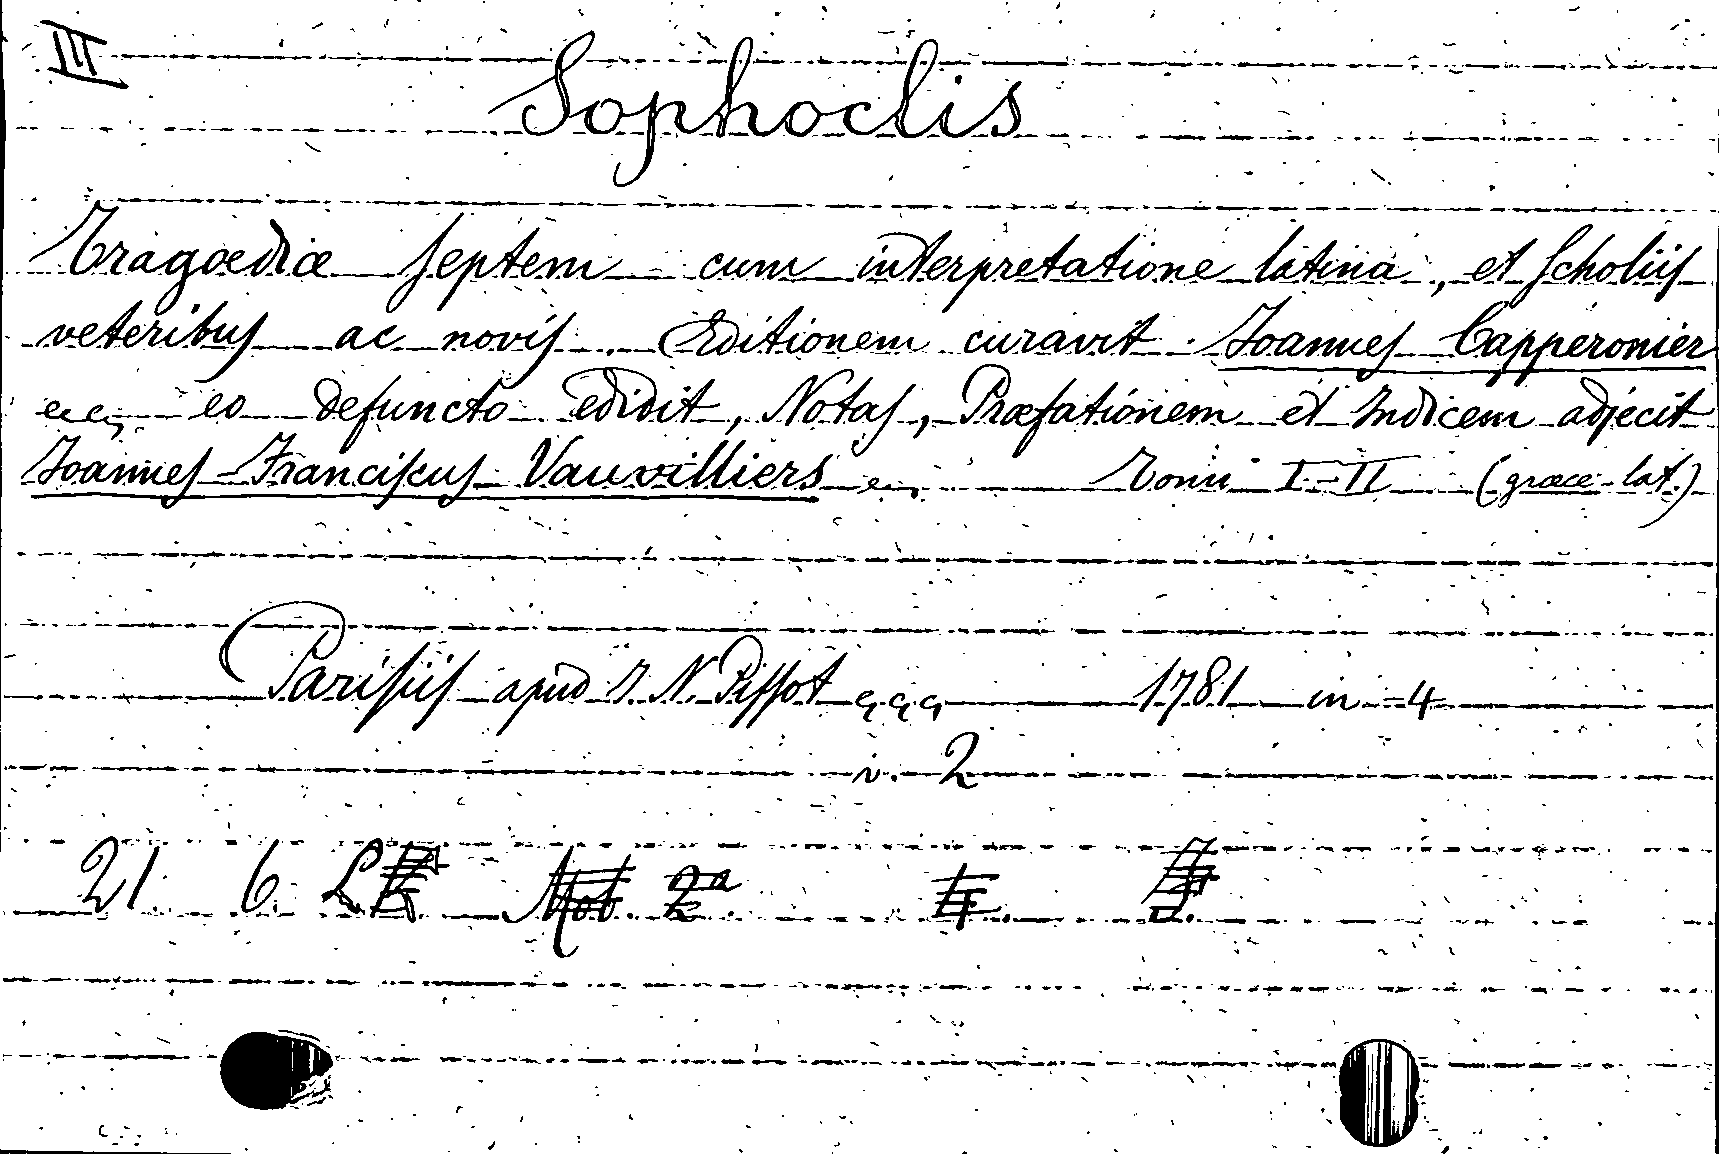 III
Sophoclis
Tragœdiæ septem cum interpretatione latina, et scholiis
veteribus ac novis. Editionem curavit Joannes Capperonier
eo defuncto edidit, Notas, Præfationem et Indicem adjecit
Joannes-Franciscus Vauvilliers Tomi I-II (græce-lat.)
Parisiis apud J. N. Pissot 1781 in-4
v. 2
21. 6. L Mob. 2ª 4.